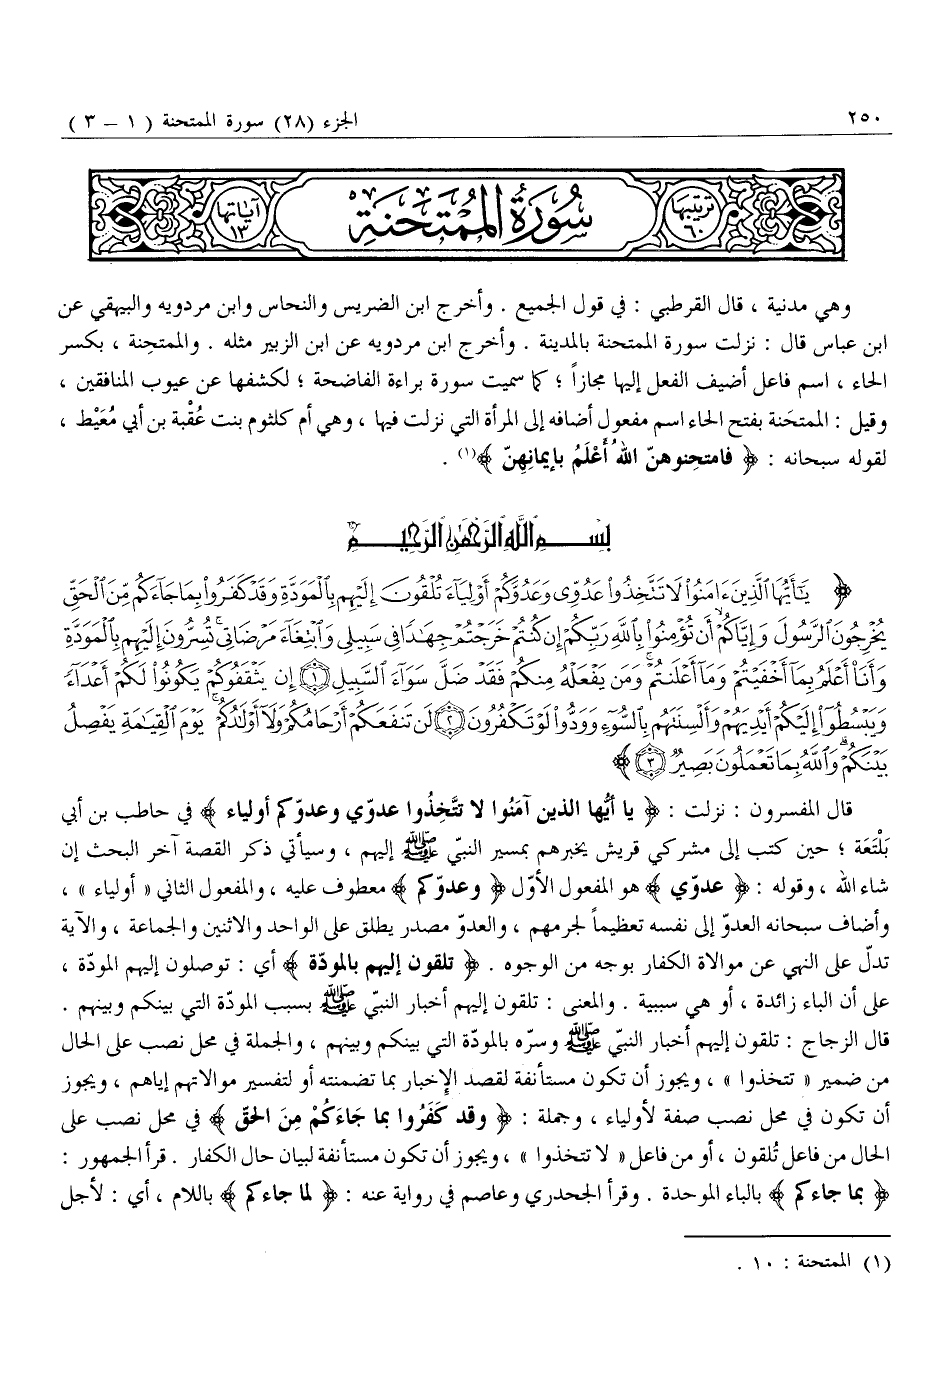 ٢٥٠ الجزء (٢٨) سورة الممتحنة ( ١ – ٣ )
ترتيبها ٦٠ سُورَةُ المُمْتَحَنَةِ آياتها ١٣
وهي مدنية ، قال القرطبي : في قول الجميع . وأخرج ابن الضريس والنحاس وابن مردويه والبيهقي عن
ابن عباس قال : نزلت سورة الممتحنة بالمدينة . وأخرج ابن مردويه عن ابن الزبير مثله . والممتحِنة ، بكسر
الحاء ، اسم فاعل أضيف الفعل إليها مجازاً ؛ كما سميت سورة براءة الفاضحة ؛ لكشفها عن عيوب المنافقين ،
وقيل : الممتحَنة بفتح الحاء اسم مفعول أضافه إلى المرأة التي نزلت فيها ، وهي أم كلثوم بنت عُقْبة بن أبي مُعَيْط ،
لقوله سبحانه : ﴿ فامتحِنوهنّ اللهُ أَعْلَمُ بإيمانِهِنّ ﴾(١) .
بِسْمِ اللَّهِ الرَّحْمَٰنِ الرَّحِيمِ
﴿ يَٰٓأَيُّهَا ٱلَّذِينَ ءَامَنُوا۟ لَا تَتَّخِذُوا۟ عَدُوِّى وَعَدُوَّكُمْ أَوْلِيَآءَ تُلْقُونَ إِلَيْهِم بِٱلْمَوَدَّةِ وَقَدْ كَفَرُوا۟ بِمَا جَآءَكُم مِّنَ ٱلْحَقِّ
يُخْرِجُونَ ٱلرَّسُولَ وَإِيَّاكُمْ ۙ أَن تُؤْمِنُوا۟ بِٱللَّهِ رَبِّكُمْ إِن كُنتُمْ خَرَجْتُمْ جِهَٰدًا فِى سَبِيلِى وَٱبْتِغَآءَ مَرْضَاتِى ۚ تُسِرُّونَ إِلَيْهِم بِٱلْمَوَدَّةِ
وَأَنَا۠ أَعْلَمُ بِمَآ أَخْفَيْتُمْ وَمَآ أَعْلَنتُمْ ۚ وَمَن يَفْعَلْهُ مِنكُمْ فَقَدْ ضَلَّ سَوَآءَ ٱلسَّبِيلِ (١) إِن يَثْقَفُوكُمْ يَكُونُوا۟ لَكُمْ أَعْدَآءً
وَيَبْسُطُوٓا۟ إِلَيْكُمْ أَيْدِيَهُمْ وَأَلْسِنَتَهُم بِٱلسُّوٓءِ وَوَدُّوا۟ لَوْ تَكْفُرُونَ (٢) لَن تَنفَعَكُمْ أَرْحَامُكُمْ وَلَآ أَوْلَٰدُكُمْ ۚ يَوْمَ ٱلْقِيَٰمَةِ يَفْصِلُ
بَيْنَكُمْ ۚ وَٱللَّهُ بِمَا تَعْمَلُونَ بَصِيرٌ (٣) ﴾
قال المفسرون : نزلت : ﴿ يا أيُّها الذين آمَنُوا لا تتَّخِذُوا عدوّي وعدوّكم أولياء ﴾ في حاطب بن أبي
بَلْتَعَة ؛ حين كتب إلى مشركي قريش يخبرهم بمسير النبيّ ﷺ إليهم ، وسيأتي ذكر القصة آخر البحث إن
شاء الله ، وقوله : ﴿ عدوّي ﴾ هو المفعول الأوّل ﴿ وعدوّكم ﴾ معطوف عليه ، والمفعول الثاني « أولياء » ،
وأضاف سبحانه العدوّ إلى نفسه تعظيماً لجرمهم ، والعدوّ مصدر يطلق على الواحد والاثنين والجماعة ، والآية
تدلّ على النهي عن موالاة الكفار بوجه من الوجوه . ﴿ تلقون إليهم بالمودّة ﴾ أي : توصلون إليهم المودّة ،
على أن الباء زائدة ، أو هي سببية . والمعنى : تلقون إليهم أخبار النبيّ ﷺ بسبب المودّة التي بينكم وبينهم .
قال الزجاج : تلقون إليهم أخبار النبيّ ﷺ وسرّه بالمودّة التي بينكم وبينهم ، والجملة في محل نصب على الحال
من ضمير « تتخذوا » ، ويجوز أن تكون مستأنفة لقصد الإخبار بما تضمنته أو لتفسير موالاتهم إياهم ، ويجوز
أن تكون في محل نصب صفة لأولياء ، وجملة : ﴿ وقد كَفَرُوا بما جَاءَكُمْ مِنَ الحَقّ ﴾ في محل نصب على
الحال من فاعل تُلقون ، أو من فاعل « لا تتخذوا » ، ويجوز أن تكون مستأنفة لبيان حال الكفار . قرأ الجمهور :
﴿ بما جاءكم ﴾ بالباء الموحدة . وقرأ الجحدري وعاصم في رواية عنه : ﴿ لما جاءكم ﴾ باللام ، أي : لأجل
(١) الممتحنة : ١٠ .